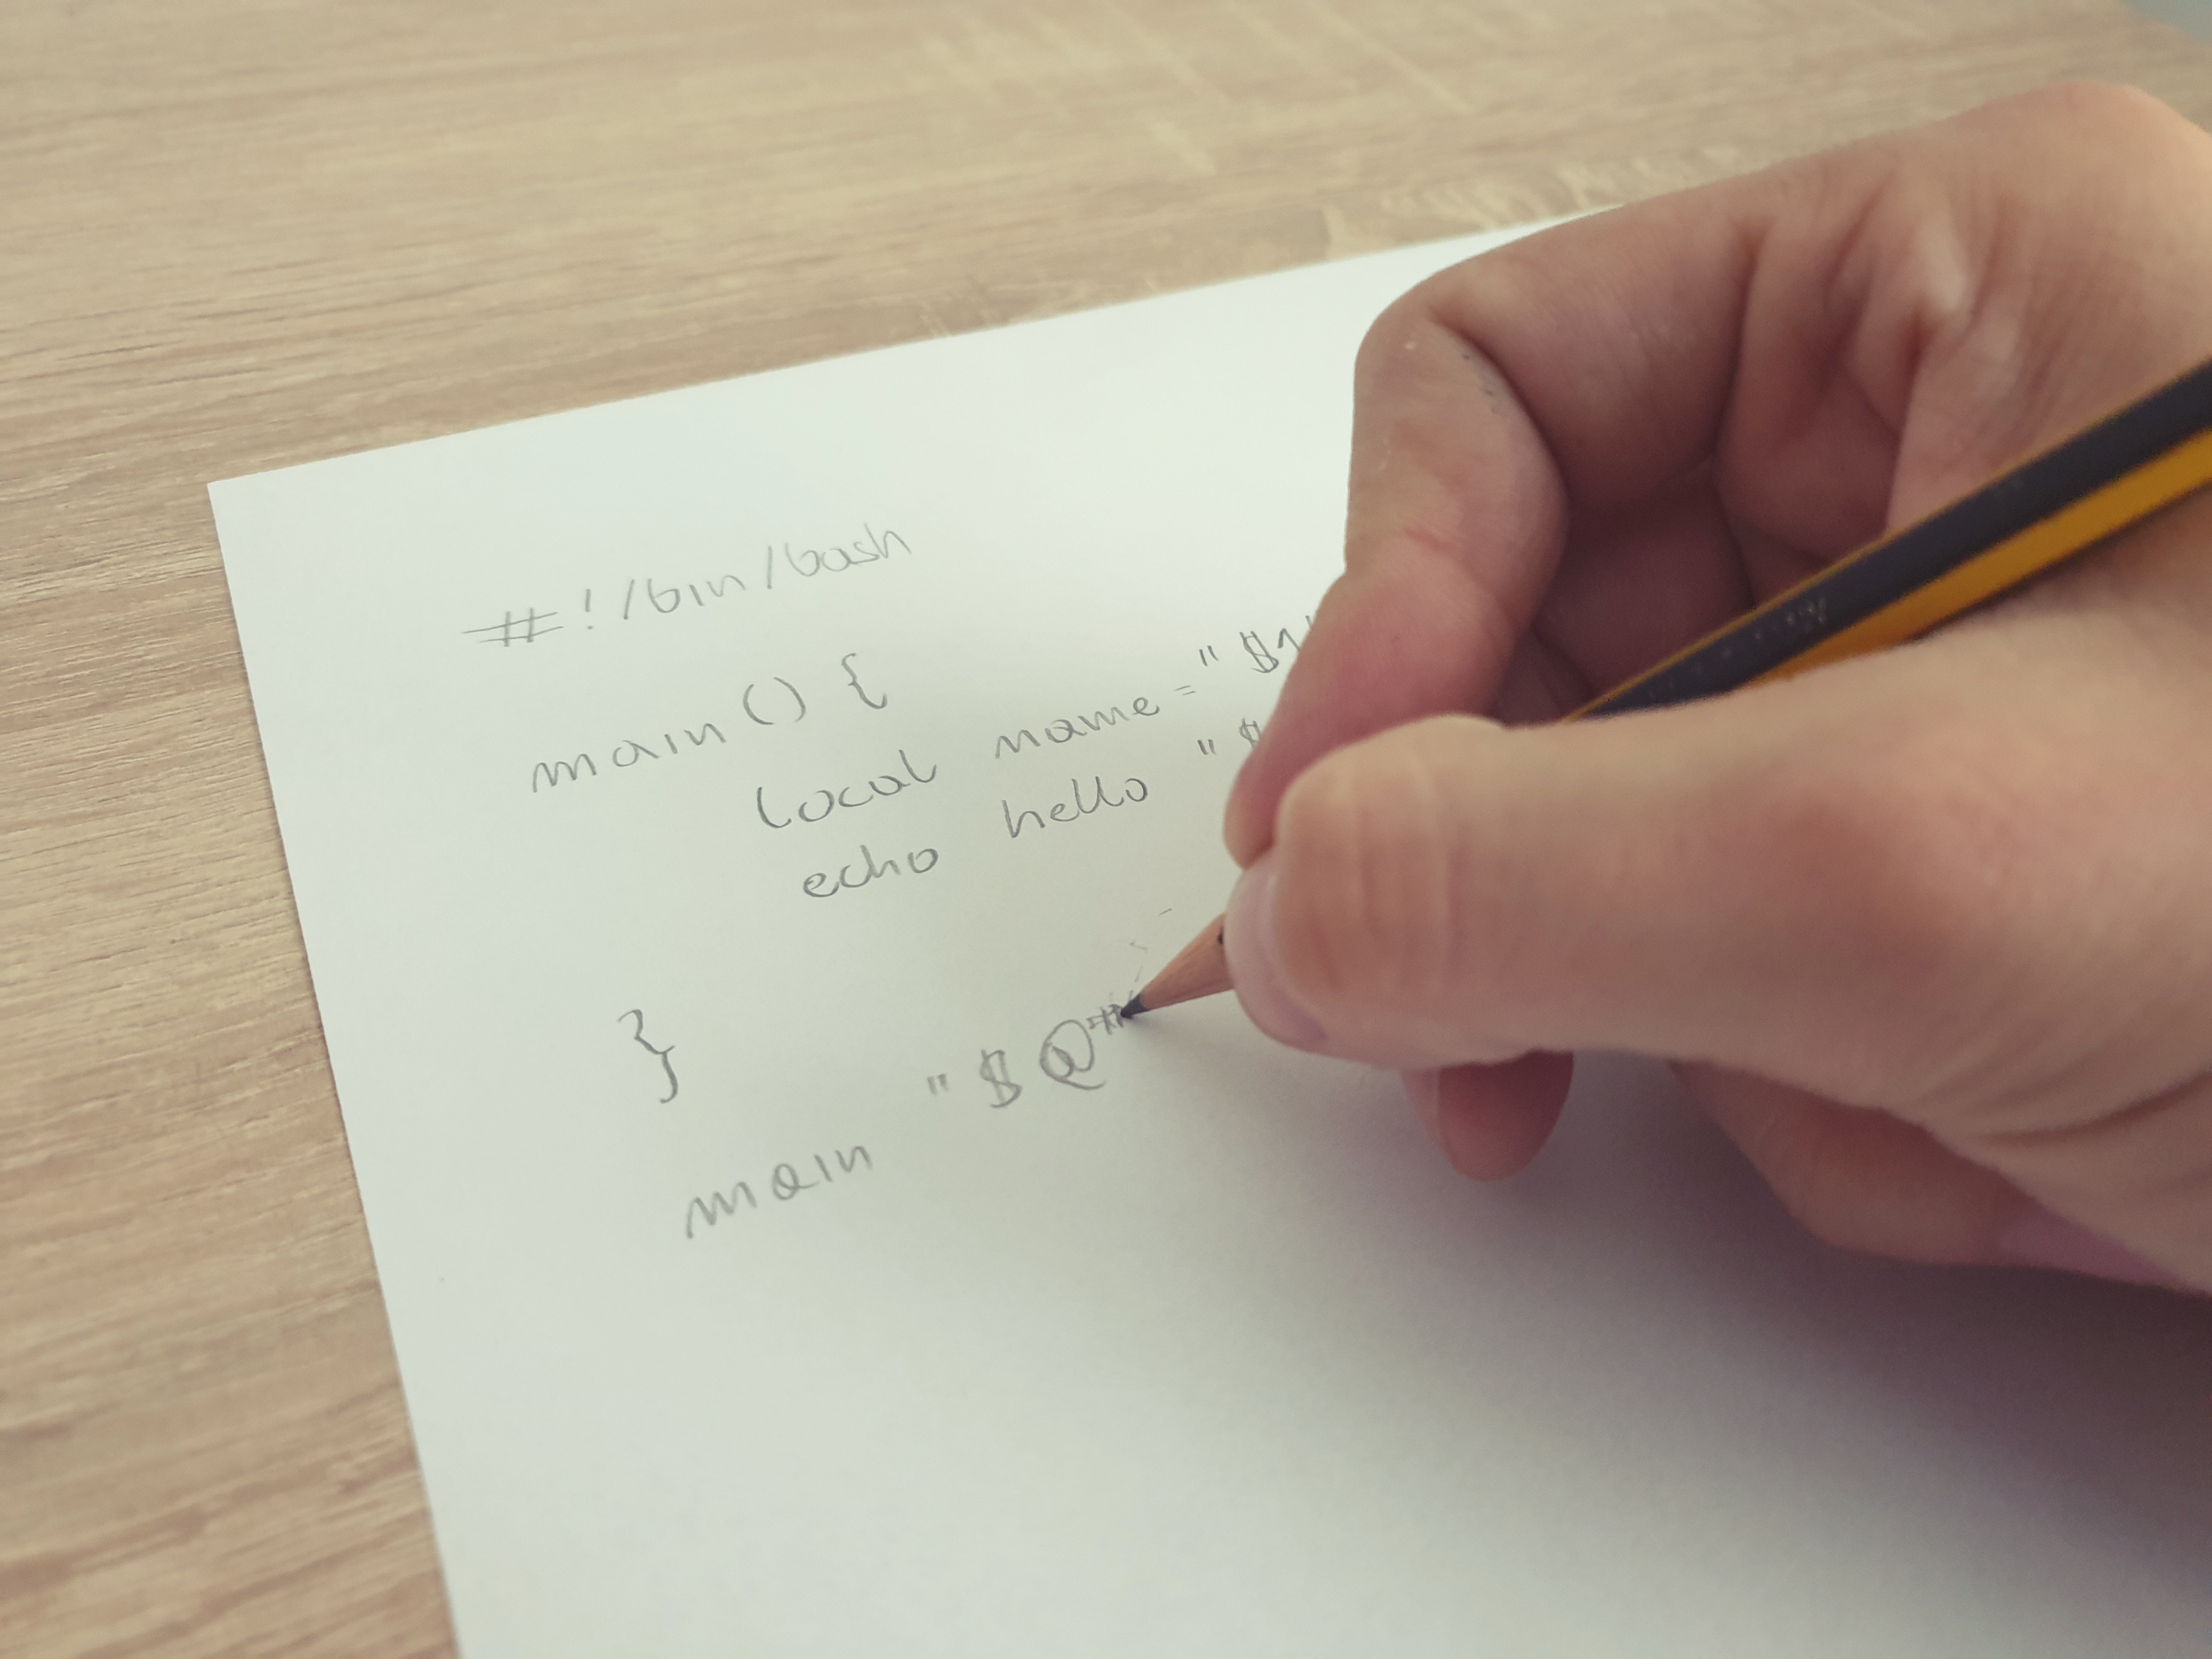 #!/bin/bash
main () {
local name = "$1
echo hello "$
}
main "$@"